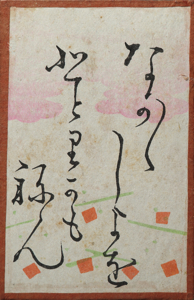 なか〱しよを
ひとりかも
ねん